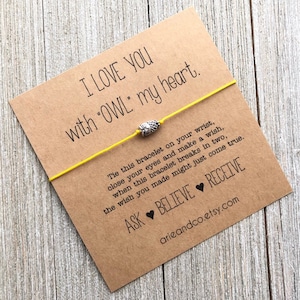 I LOVE YOU
with *OWL* my heart.
Tie this bracelet on your wrist,
close your eyes and make a wish,
when this bracelet breaks in two,
the wish you made might just come true.
ASK ♥ BELIEVE ♥ RECEIVE
arieandco.etsy.com